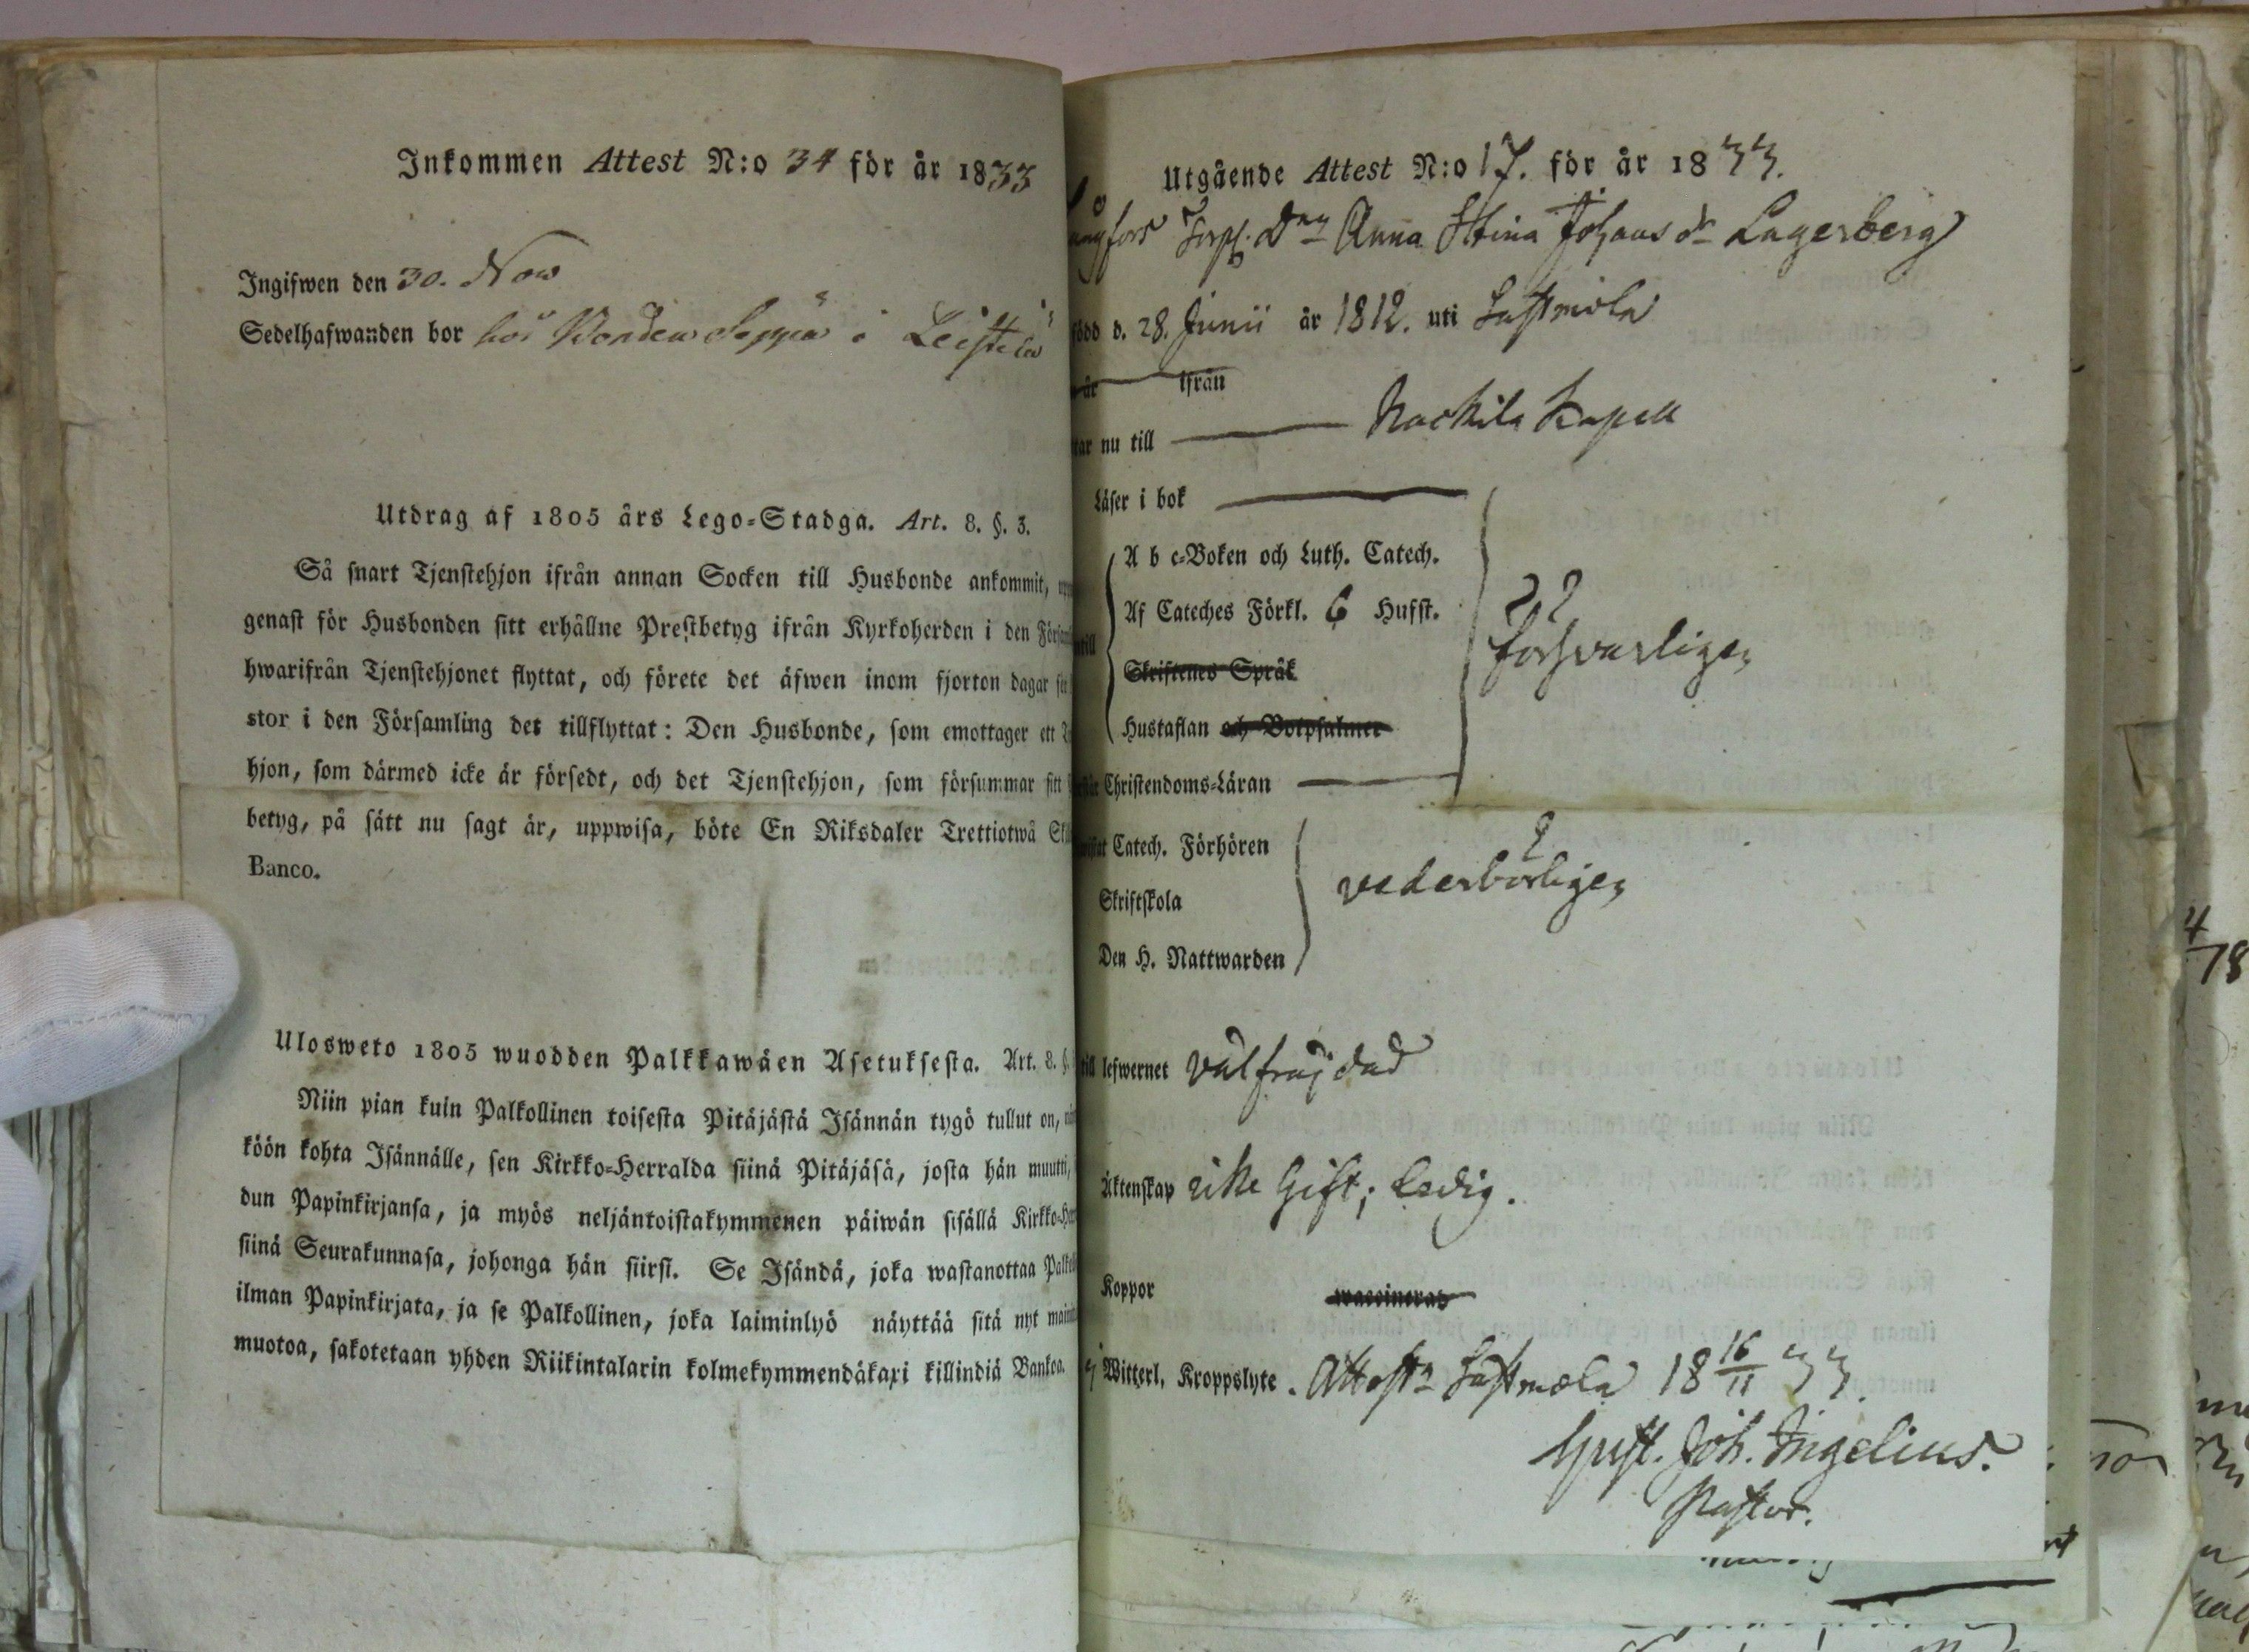 Inkommen Attest N:o 34 för år 1833
Ingifwen den 30. Nov
Sedelhafwanden bor hos Bonden Seppä i Leistilä
Utdrag af 1805 års Lego-Stadga. Art. 8. §. 3.
Så snart Tjenstehjon ifrån annan Socken till Husbonde ankommit,
genast för Husbonden sitt erhållne Prestbetyg ifrån Kyrkoherden i den
hwarifrån Tjenstehjonet flyttat, och förete det äfwen inom fjorton dagar
stor i den Församling det tillflyttat: Den Husbonde, som emottager ett
hjon, som därmed icke är försedt, och det Tjenstehjon, som försummar sitt
betyg, på sätt nu sagt är, uppwisa, böte En Riksdaler Trettiotwå
Banco.
Ulosweto 1805 wuodden Palkkawäen Asetuksesta. Art. 8. §.
Niin pian kuin Palkollinen toisesta Pitäjästä Isännän tygö tullut on,
köön kohta Isännälle, sen Kirkko-Herralda siinä Pitäjäsä, josta hän muutti,
dun Papinkirjansa, ja myös neljäntoistakymmenen päiwän sisällä
siinä Seurakunnasa, johonga hän siirsi. Se Isändä, joka wastanottaa
ilman Papinkirjata, ja se Palkollinen, joka laiminlyö näyttää sitä nyt
muotoa, sakotetaan yhden Riikintalarin kolmekymmendäkaxi killindiä Bankoa.
Utgående Attest N:o 17. för år 1833.
Torp. Dn Anna Stina Johansdr Lagerberg
född d. 28. Junii år 1812. uti Lastmola
år ifrån
nu till Nackila Kapell
Läser i bok
A b c-Boken och Luth. Catech.
Af Cateches Förkl. 6 Hufst.
försvarligen
Skriftenes Språk
Hustaflan och Botpsalmer
Christendoms-Läran
Catech. Förhören
vederbörligen
Skriftskola
Den H. Nattwarden
till lefwernet välfräjdad
Äktenskap icke Gift; Ledig.
Koppor waccinerad
Witterl. Kroppslyte. Attestr Lastmola 18 16/11 33.
Gust. Joh. Ingelius.
Pastor.
4
78